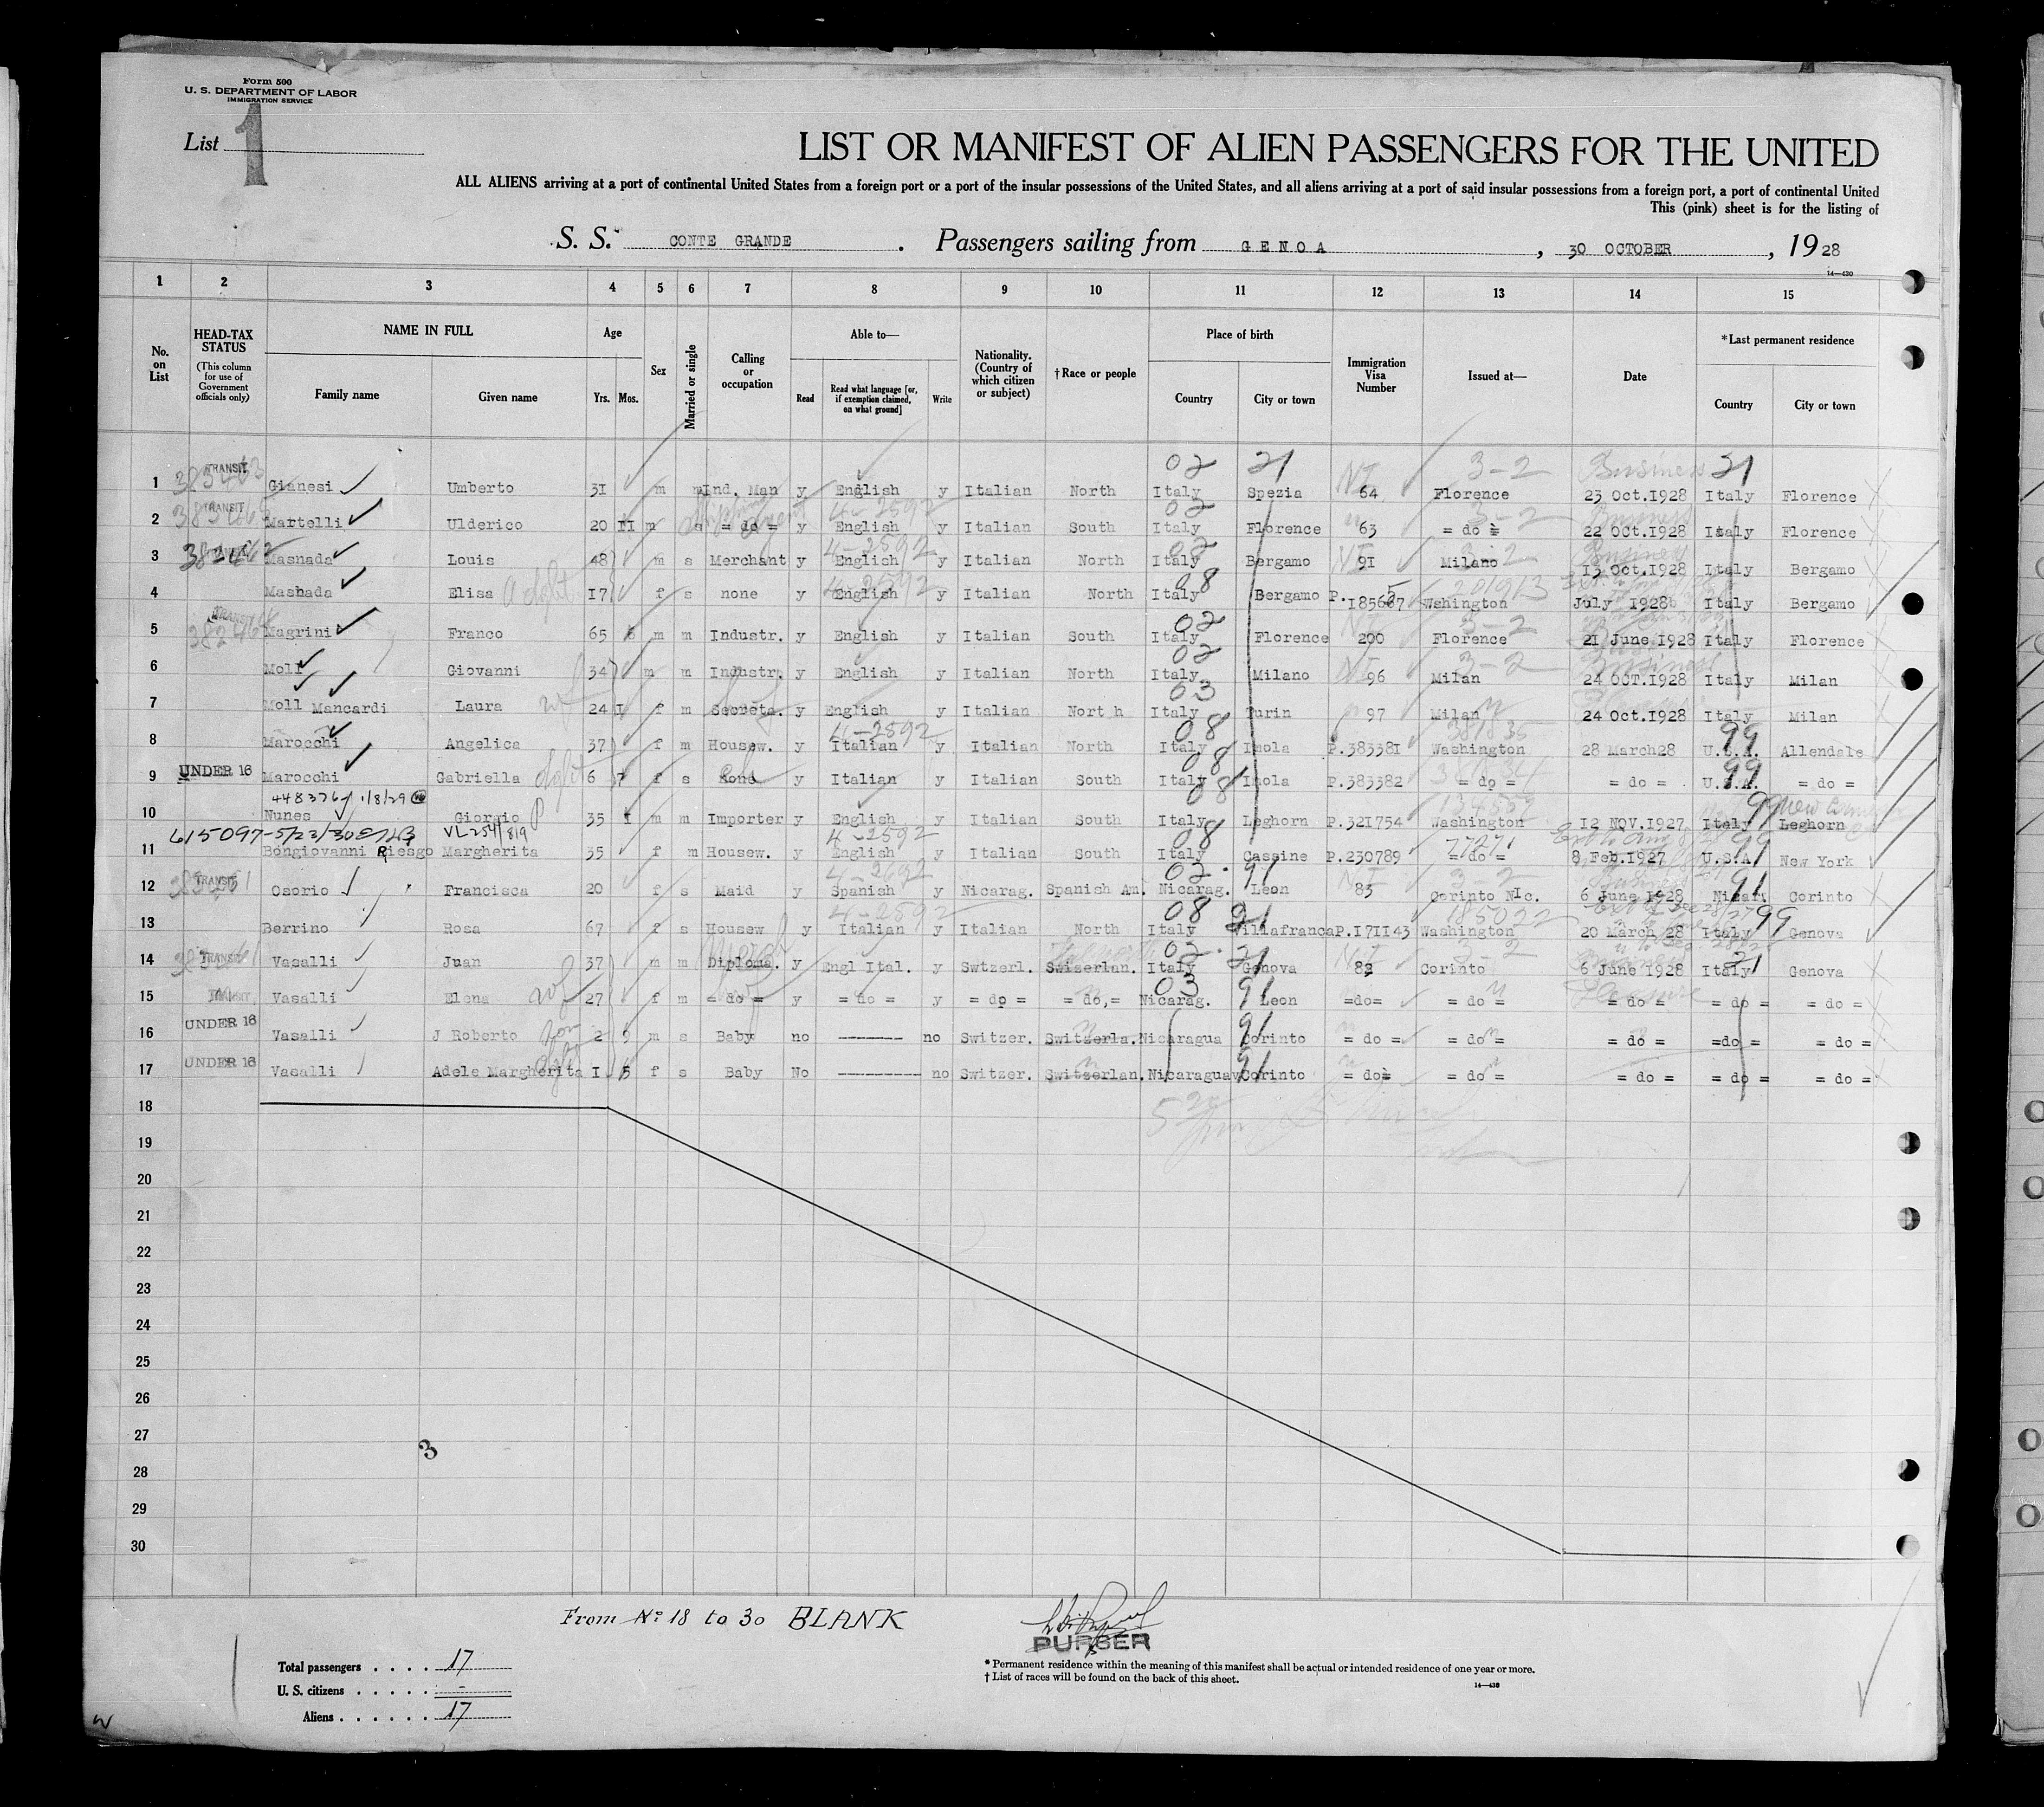 Form 500
U. S. DEPARTMENT OF LABOR
IMMIGRATION SERVICE
List 1
LIST OR MANIFEST OF ALIEN PASSENGERS FOR THE UNITED
ALL ALIENS arriving at a port of continental United States from a foreign port or a port of the insular possessions of the United States, and all aliens arriving at a port of said insular possessions from a foreign port, a port of continental United
This (pink) sheet is for the listing of
S. S. CONTE GRANDE . Passengers sailing from GENOA , 30 OCTOBER , 1928
14—430
1 2 3 4 5 6 7 8 9 10 11 12 13 14 15
No. on List
HEAD-TAX STATUS (This column for use of Government officials only)
NAME IN FULL
Family name Given name
Age Yrs. Mos.
Sex
Married or single
Calling or occupation
Able to—
Read Read what language [or, if exemption claimed, on what ground] Write
Nationality. (Country of which citizen or subject)
†Race or people
Place of birth
Country City or town
Immigration Visa Number
Issued at—
Date
*Last permanent residence
Country City or town
02 21 NI 3-2 Business 21
1 TRANSIT Gianesi Umberto 31 m m Ind. Man y English y Italian North Italy Spezia 64 Florence 23 Oct.1928 Italy Florence
4-2592 02 3-2 Business
2 TRANSIT Martelli Ulderico 20 11 m s = do = y English y Italian South Italy Florence 63 = do = 22 Oct.1928 Italy Florence
4-2592 02 NI 3-2 Business
3 382462 Masnada Louis 48 m s Merchant y English y Italian North Italy Bergamo 91 Milano 13 Oct.1928 Italy Bergamo
4-2592 08
4 Masnada Elisa 17 f s none y English y Italian North Italy Bergamo P.185667 Washington July 1928 Italy Bergamo
02 3-2
5 TRANSIT 382464 Magrini Franco 65 6 m m Industr. y English y Italian South Italy Florence 200 Florence 21 June 1928 Italy Florence
02 NI 3-2 Business
6 Moll Giovanni 34 m m Industr. y English y Italian North Italy Milano 96 Milan 24 OCT.1928 Italy Milan
wf 03
7 Moll Mancardi Laura 24 1 f m Secreta. y English y Italian North Italy Turin 97 Milan 24 Oct.1928 Italy Milan
4-2592 08 99
8 Marocchi Angelica 37 f m Housew. y Italian y Italian North Italy Imola P.383381 Washington 28 March28 U.S.A. Allendale
08 99
9 UNDER 16 Marocchi Gabriella 6 7 f s None y Italian y Italian South Italy Imola P.383382 = do = = do = U.S.A. = do =
448376 1/8/29 08 134557 99
10 Nunes Giorgio 35 1 m m Importer y English y Italian South Italy Leghorn P.321754 Washington 12 NOV.1927 Italy Leghorn
615097-5/23/30 VL 254/819 4-2592 08
11 Bongiovanni Riesgo Margherita 35 f m Housew. y English y Italian South Italy Cassine P.230789 = do = 8 Feb.1927 U.S.A. New York
4-2692 02 91 NI 3-2 91
12 TRANSIT Osorio Francisca 20 f s Maid y Spanish y Nicarag. Spanish Am. Nicarag. Leon 83 Corinto Nic. 6 June 1928 Nicar. Corinto
4-2592 08 21 185022 99
13 Berrino Rosa 67 f s Housew y Italian y Italian North Italy Villafranca P.171143 Washington 20 March 28 Italy Genova
02 21 NI 3-2 21
14 TRANSIT Vasalli Juan 37 m m Diploma. y Engl Ital. y Swtzerl. Switserlan. Italy Genova 82 Corinto 6 June 1928 Italy Genova
wf 03 91 Pleasure
15 TRANSIT Vasalli Elena 27 f m = do = y = do = y = do = = do,= Nicarag. Leon =do= = do = = do = = do = = do =
son 91
16 UNDER 16 Vasalli J Roberto 2 9 m s Baby no ------- no Switzer. Switzerla. Nicaragua Corinto = do = = do = = do = =do = = do =
91
17 UNDER 16 Vasalli Adele Margherita 1 5 f s Baby No --------- no Switzer. Switserlan. Nicaragua Corinto = do= = do = = do = = do = = do =
18
19
20
21
22
23
24
25
26
27
3
28
29
30
From Nº 18 to 30 BLANK
PURSER
Total passengers . . . . 17
U. S. citizens . . . . . -
Aliens . . . . . . 17
* Permanent residence within the meaning of this manifest shall be actual or intended residence of one year or more.
† List of races will be found on the back of this sheet.
14—430